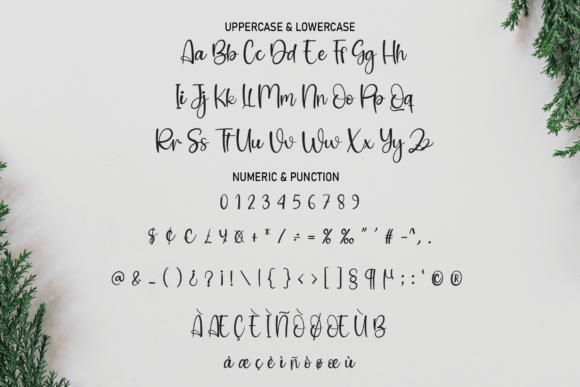 UPPERCASE & LOWERCASE
Aa Bb Cc Dd Ee Ff Gg Hh
Ii Jj Kk Ll Mm Nn Oo Pp Qq
Rr Ss Tt Uu Vv Ww Xx Yy Zz
NUMERIC & PUNCTION
0 1 2 3 4 5 6 7 8 9
$ ¢ € £ ¥ ¤ + * / ÷ = % ‰ " ' # - ^ , .
@ & _ ( ) ¿ ? ¡ ! \ | { } < > [ ] § ¶ µ ; : ' © ®
À Æ Ç È Ì Ñ Ò Ø Œ Ù ß
à æ ç è ì ñ ò ø œ ù